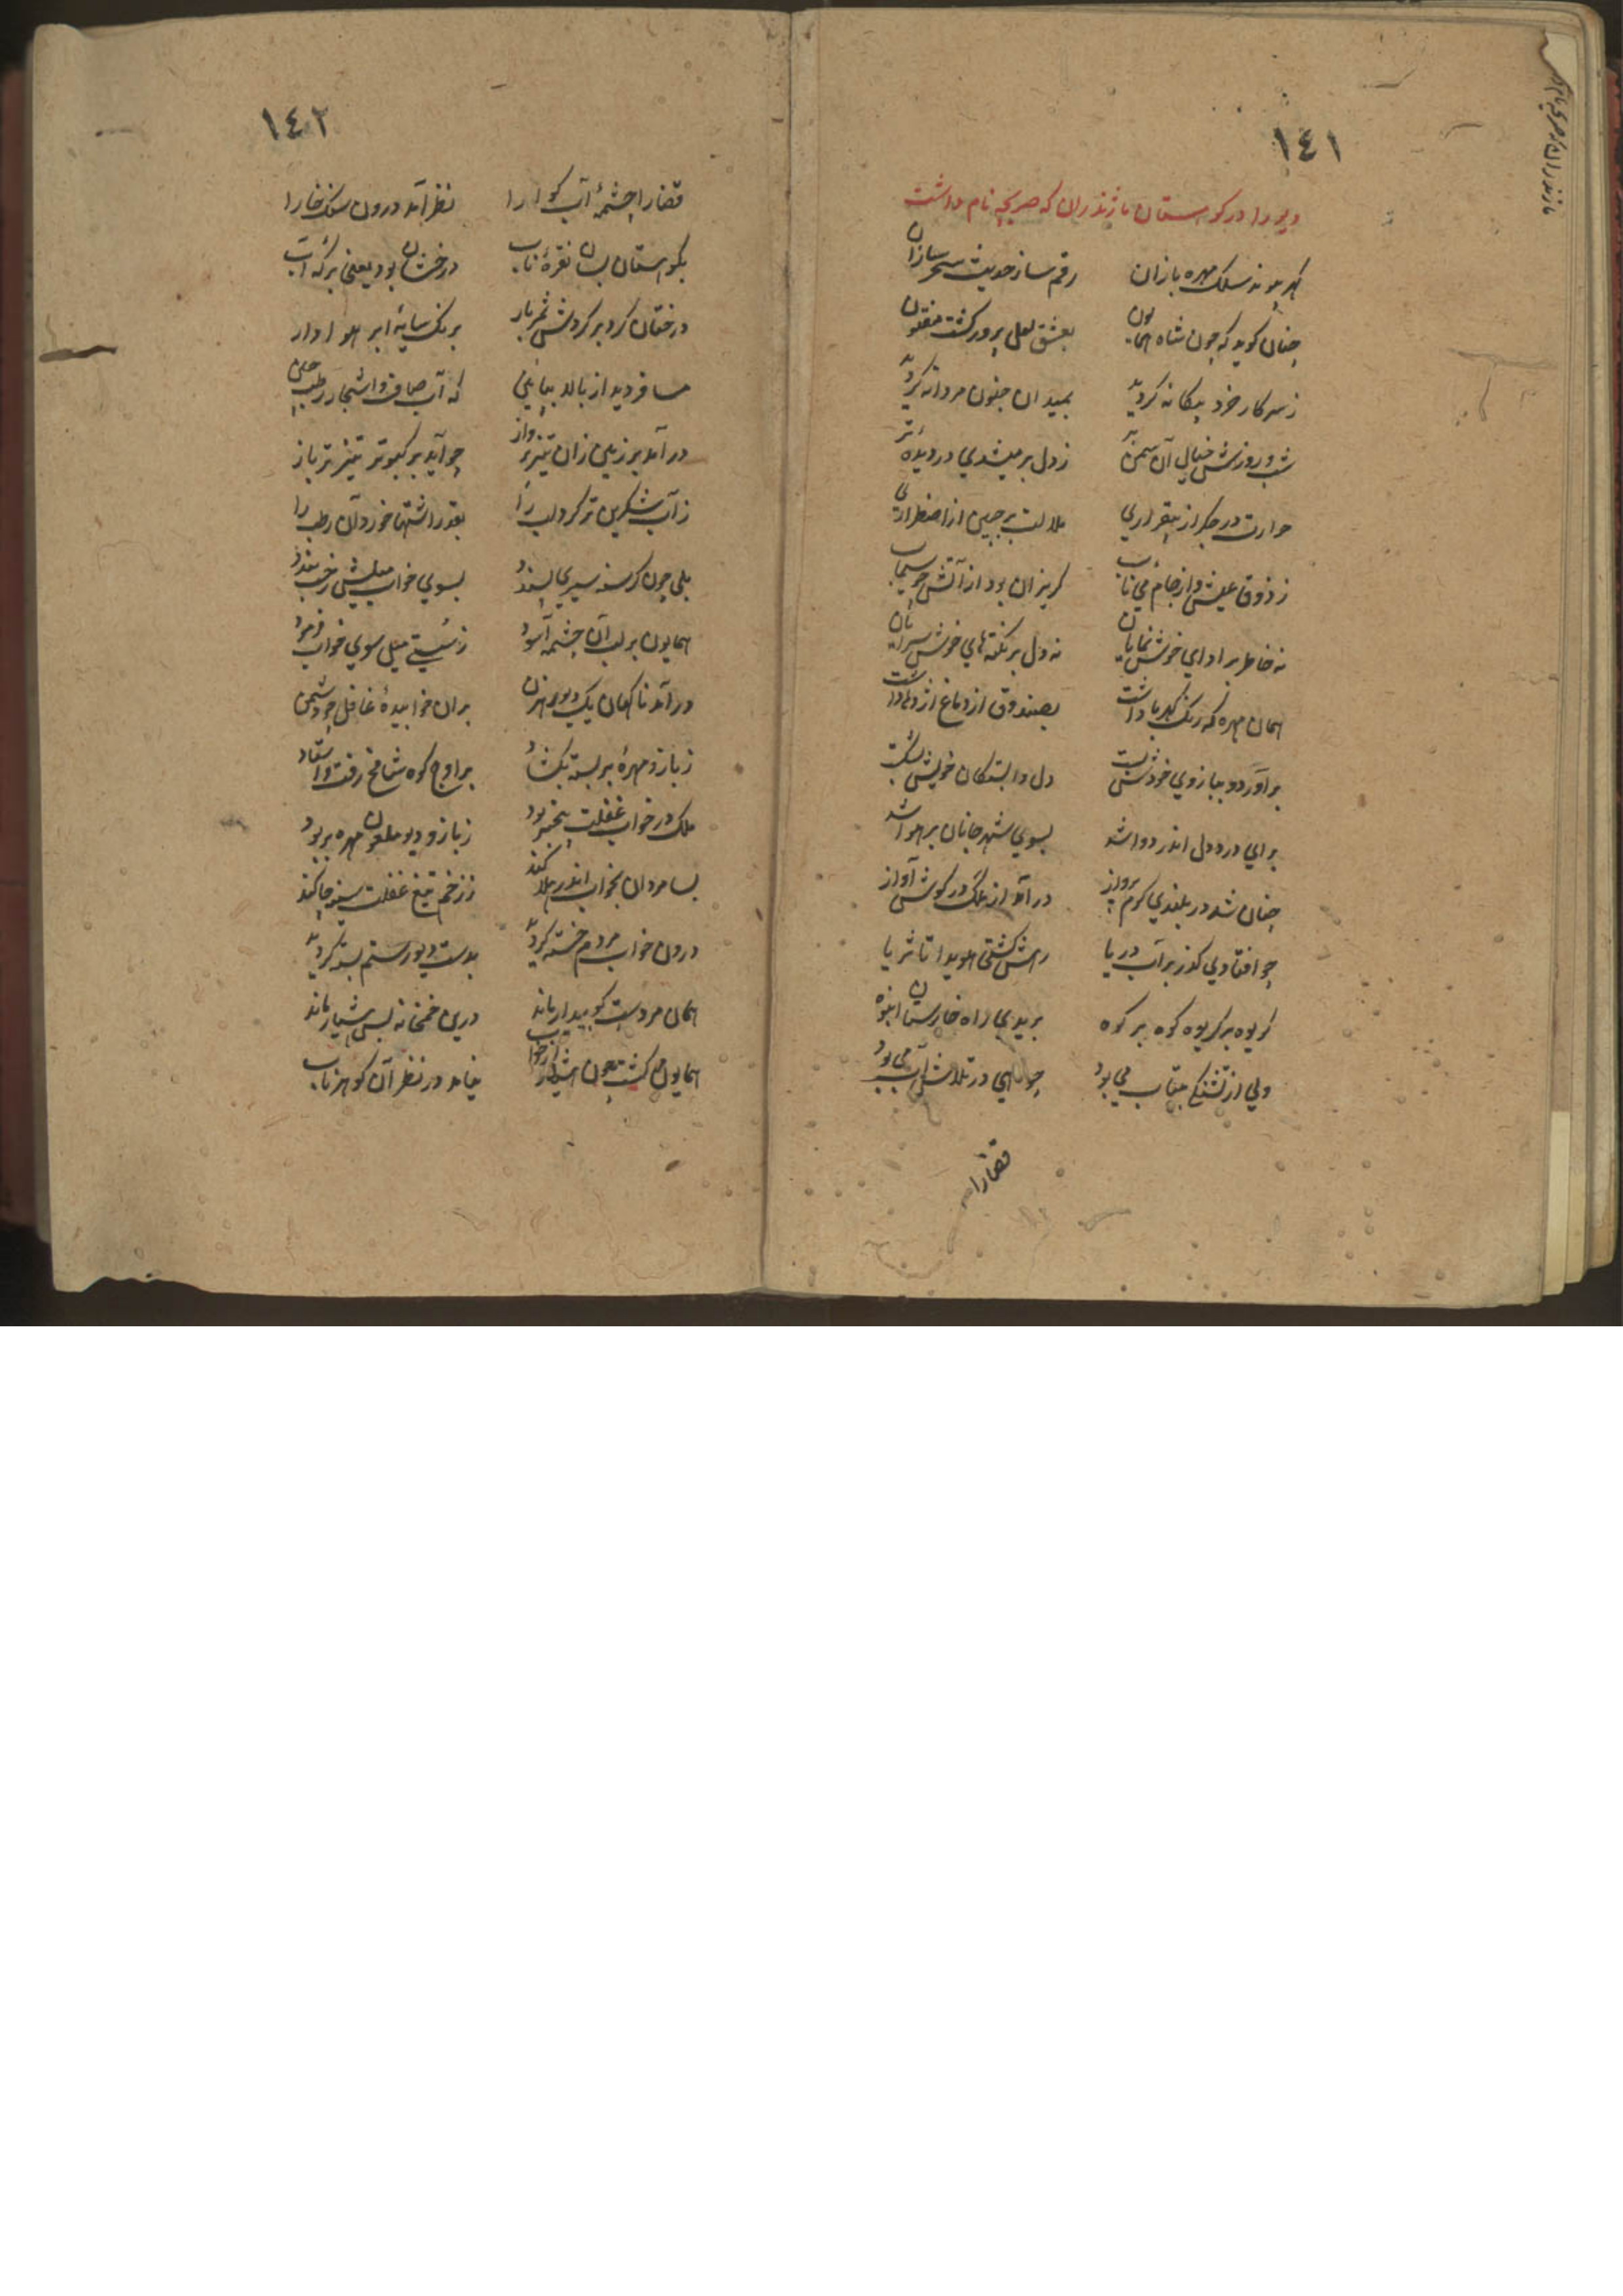 ١٤١
دیو را در کوهستان مازندران که صریحه نام داشت
گهر پیوند سلک مهره بازان رقم ساز حدیث سحر سازان
چنان گوید که چون شاه همایون بعشق لعل پرور گشت مفتون
ز سر کار خرد بیگانه گردید بمیدان جنون مردانه گردید
شب و روزش خیال آن سمنبر ز دل بر میشدی در دیدهٔ تر
حرارت در جگر از بیقراری ملالت بر جبین از اضطراری
ز ذوق عیش و از جام می ناب گریزان بود از آتش چو سیماب
نه خاطر بر ادای خوش نمایان نه دل بر نکته های خوش سرایان
همان مهره که رنگ کهربا داشت بصندوق از دماغ اژدها داشت
برآورد و ببازوی خودش بست دل وابستگان خویش بشکست
برای درد دل اندر دوا شد بسوی شهر جانان بر هوا شد
چنان شد در بلندی گرم پرواز در آمد از ملک در گوش آواز
چو افتادی گذر بر آب دریا رهش گشتی هویدا تا ثریا
گریوه بر گریوه کوه بر کوه بریدی راه خارستان انبوه
ولی از تشنگی بیتاب می بود چو ماهی در تلاش آب می بود
قضا را
١٤٢
قضا را چشمهٔ آب گوارا نظر آمد درون سنگ خارا
بکوهستان بسان نقرهٔ ناب درخشان بود یعنی برکهٔ آب
درختان گرد بر گردش ثمربار برنگ سایهٔ ابر هوادار
مسافر دید از بالا بپایین که آب صاف و اشجار رطب چین
در آمد بر زمین زان تیز پرواز چو آید بر کبوتر تیز پر باز
ز آب شکرین تر کرد لب را بقدر اشتها خورد آن رطب را
بلی چون گرسنه سیری پسندد بسوی خواب میلش رخت بندد
همایون بر لب آن چشمه آسود ز سستی میل سوی خواب فرمود
در آمد ناگهان یک دیو رهزن بران خوابیدهٔ غافل چو دشمن
ز بازو مهرهٔ بر بسته بگشاد بر اوج کوه شامخ رفت و استاد
ملک در خواب غفلت بیخبر بود ز بازو دیو ملعون مهره بربود
بسا مردان بخواب اندر هلاکند ز زخم تیغ غفلت سینه چاکند
درون خواب مردم خسته گردید بدست دیو رستم بسته گردید
همان مردست کو بیدار ماند درین خمخانه بس هشیار ماند
همایون گشت چون هشیار از خواب نیامد در نظر آن گوهر ناب